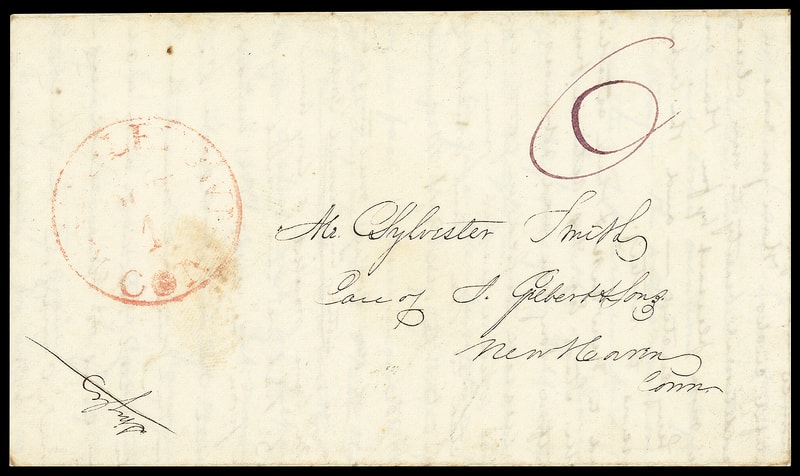 6
CON
Mr. C Sylvester Smith
Care of J. Gilbert & Sons
New Haven
Conn.
Single